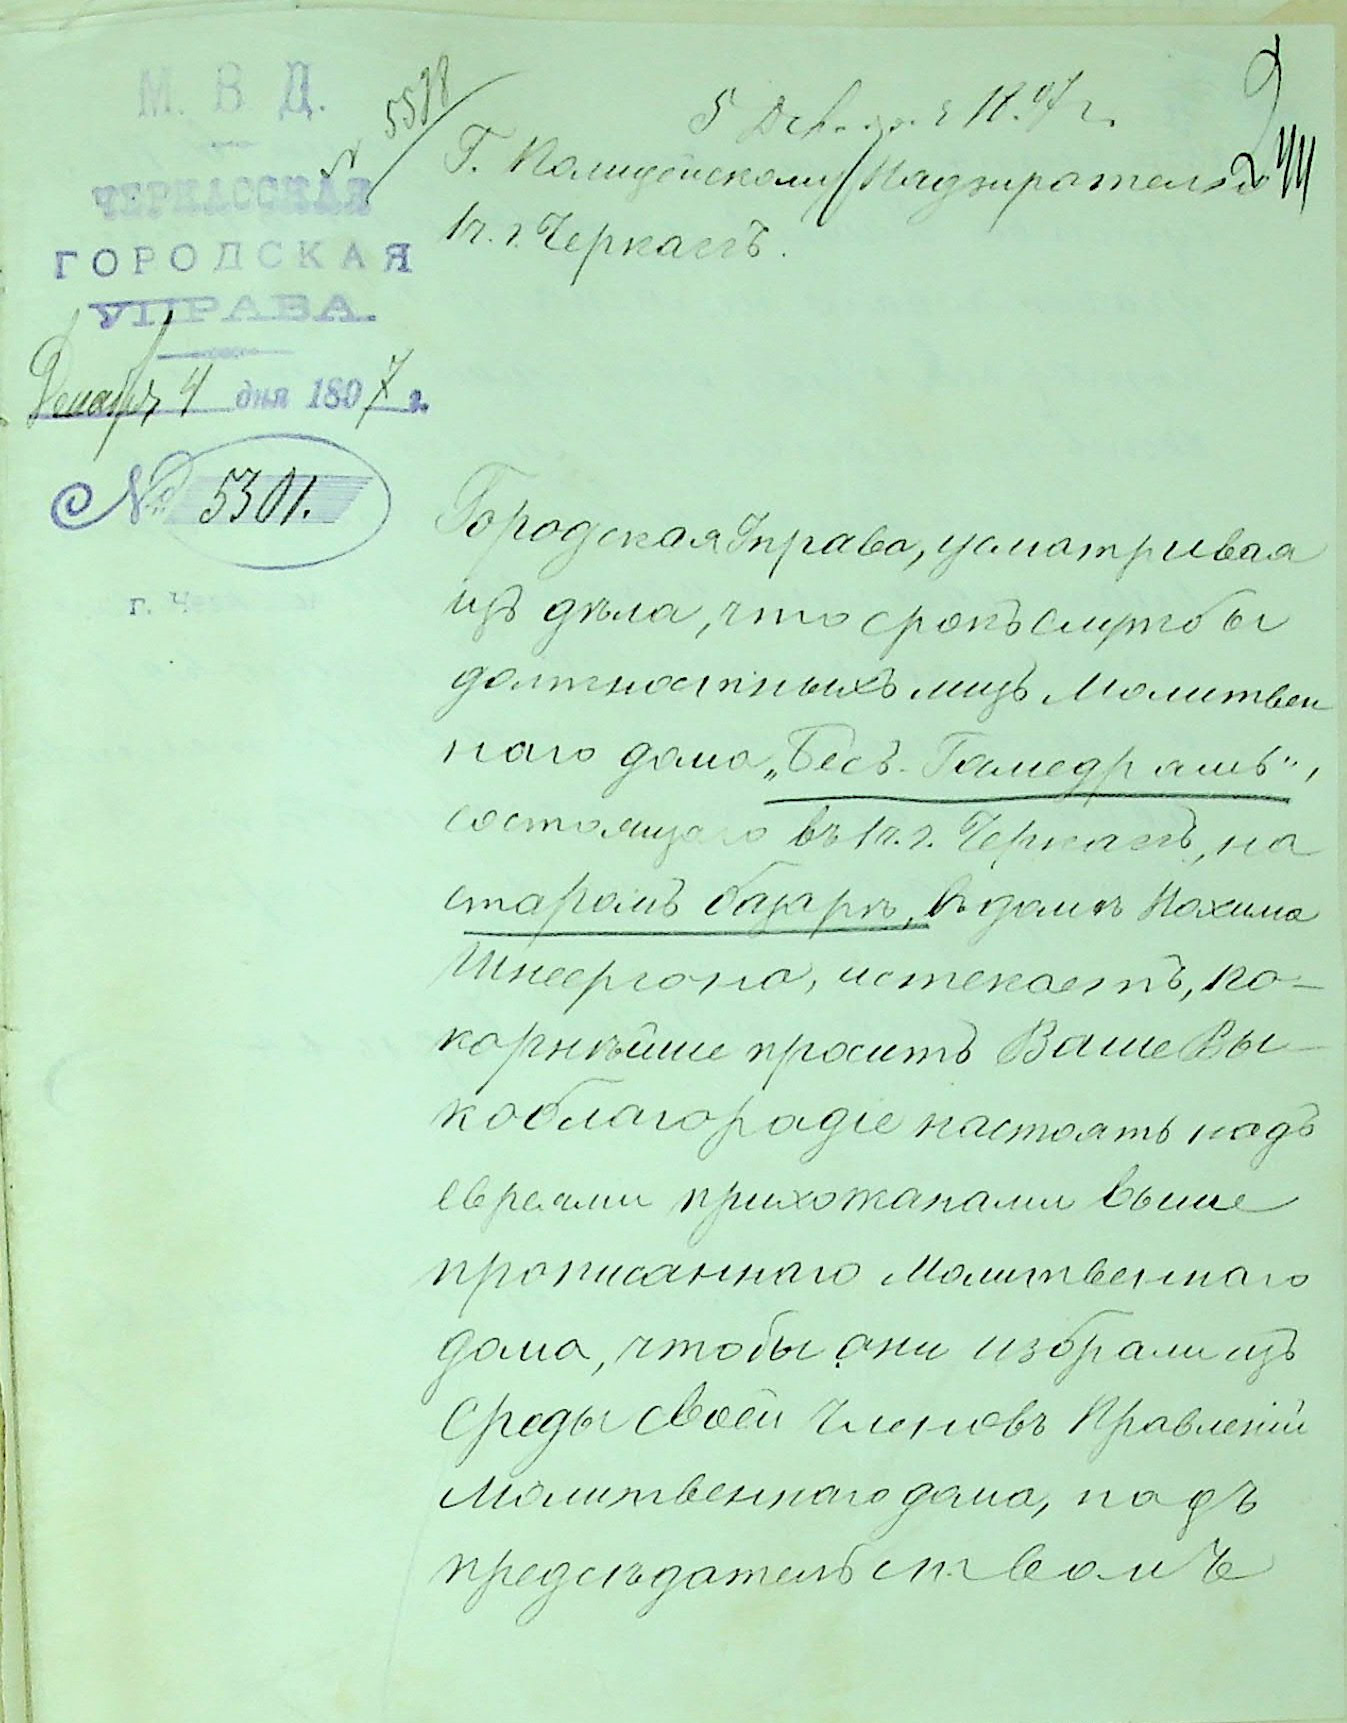 М. В. Д.
ЧЕРКАССКАЯ
ГОРОДСКАЯ
УПРАВА.
Декабря 4 дня 1897 г.
№ 5301.
г. Черкассы
№ 5598
5 Дек 1897 г.
244
Г. Полицейскому Надзирателю
1 ч. г. Черкассъ.
Городская Управа, усматривая
изъ дѣла, что срокъ службы
должностныхъ лицъ Молитвен
наго дома „Бесъ-Гамедрашъ“,
состоящаго въ 1 ч. г. Черкассъ, на
старомъ базарѣ, въ домѣ Нахима
Шнеерзона, истекаетъ, по-
корнѣйше проситъ Ваше Вы-
коблагородіе настоять надъ
евреями прихожанами выше
прописаннаго Молитвеннаго
дома, чтобы они избрали изъ
среды своей Членовъ Правленій
Молитвеннаго дома, подъ
предсѣдательствомъ